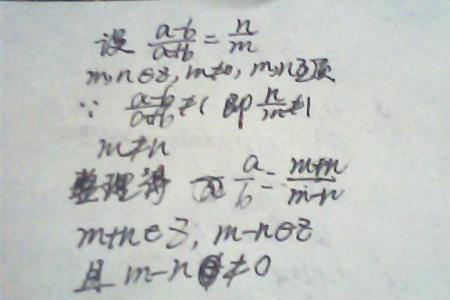 设 (a-b)/(a+b) = n/m
m,n∈Z, m≠0, m,n互质
∵ (a-b)/(a+b) ≠1 即 n/m ≠1
m≠n
整理得 a/b = (m+n)/(m-n)
m+n∈Z, m-n∈Z
且 m-n ≠0